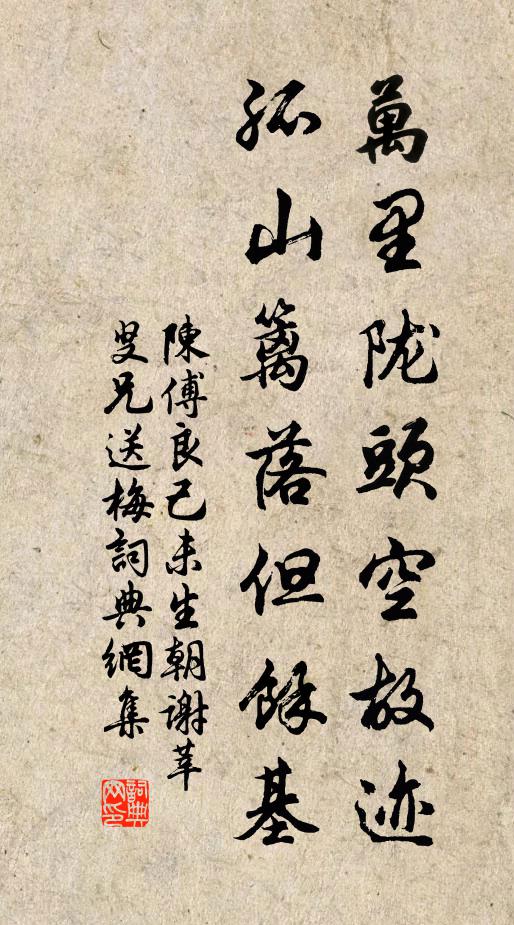 萬里陇頭空故迹
孤山籬落但餘基
陳傅良己未生朝謝莘
叟兄送梅詞典網集
詞典网印